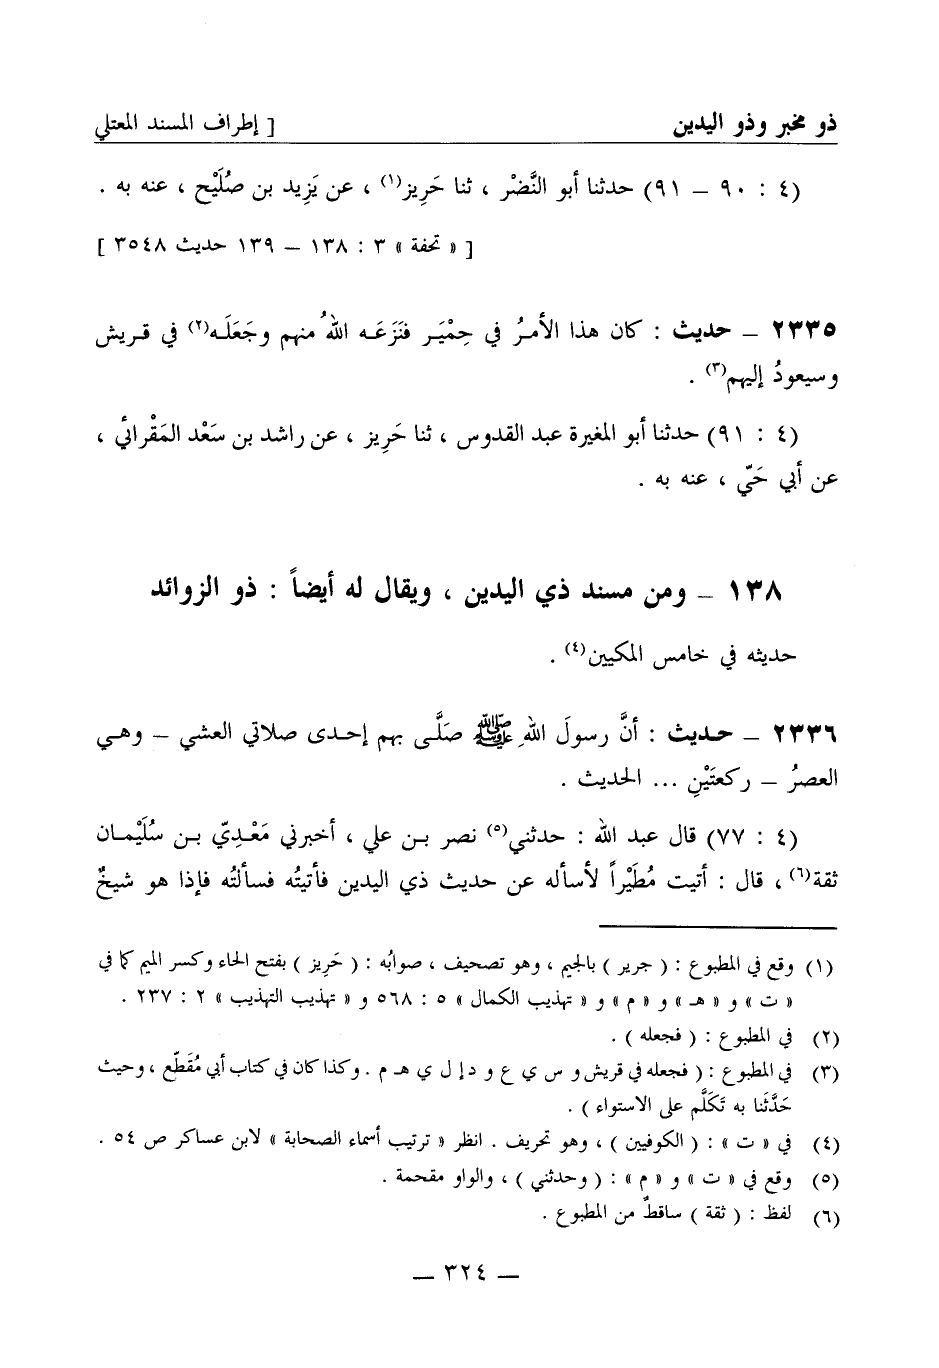 ذو مخبر وذو اليدين [ إطراف المسند المعتلي
(٤ : ٩٠ – ٩١) حدثنا أبو النَّضْر ، ثنا حَرِيز(١) ، عن يَزِيد بن صُلَيْح ، عنه به .
[ « تحفة » ٣ : ١٣٨ – ١٣٩ حديث ٣٥٤٨ ]
٢٣٣٥ – حديث : كان هذا الأمرُ في حِمْيَر فنَزَعَه اللهُ منهم وجَعَلَه(٢) في قريش
وسيعودُ إليهم(٣) .
(٤ : ٩١) حدثنا أبو المغيرة عبد القدوس ، ثنا حَرِيز ، عن راشد بن سَعْد المَقْرائي ،
عن أبي حَيّ ، عنه به .
١٣٨ – ومن مسند ذي اليدين ، ويقال له أيضاً : ذو الزوائد
حديثه في خامس المكيين(٤) .
٢٣٣٦ – حديث : أنَّ رسولَ اللهِ ﷺ صَلَّى بهم إحدى صلاتي العشي – وهي
العصرُ – ركعتَيْنِ ... الحديث .
(٤ : ٧٧) قال عبد الله : حدثني(٥) نصر بن علي ، أخبرني مَعْدِيّ بن سُلَيْمان
ثقة(٦) ، قال : أتيت مُطَيْراً لأسأله عن حديث ذي اليدين فأتيتُه فسألتُه فإذا هو شيخٌ
(١) وقع في المطبوع : ( جرير ) بالجيم ، وهو تصحيف ، صوابُه : ( حَرِيز ) بفتح الحاء وكسر الميم كما في
« ت » و « هـ » و « م » و « تهذيب الكمال » ٥ : ٥٦٨ و « تهذيب التهذيب » ٢ : ٢٣٧ .
(٢) في المطبوع : ( فجعله ) .
(٣) في المطبوع : ( فجعله في قريش و س ي ع و د إ ل ي هـ م . وكذا كان في كتاب أبي مُقَطَّع ، وحيث
حَدَّثَنا به تَكَلَّم على الاستواء ) .
(٤) في « ت » : ( الكوفيين ) ، وهو تحريف . انظر « ترتيب أسماء الصحابة » لابن عساكر ص ٥٤ .
(٥) وقع في « ت » و « م » : ( وحدثني ) ، والواو مقحمة .
(٦) لفظ : ( ثقة ) ساقطٌ من المطبوع .
– ٣٢٤ –